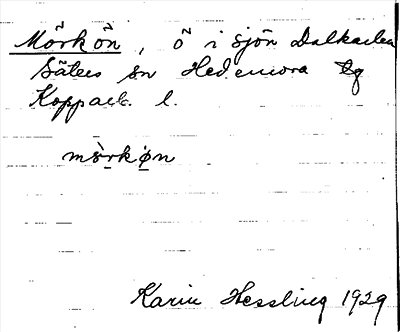 Mörkön, ö i sjön Dalkarlen
Säters sn Hedemora tg
Kopparb. l.
mörkøn
Karin Hessling 1929